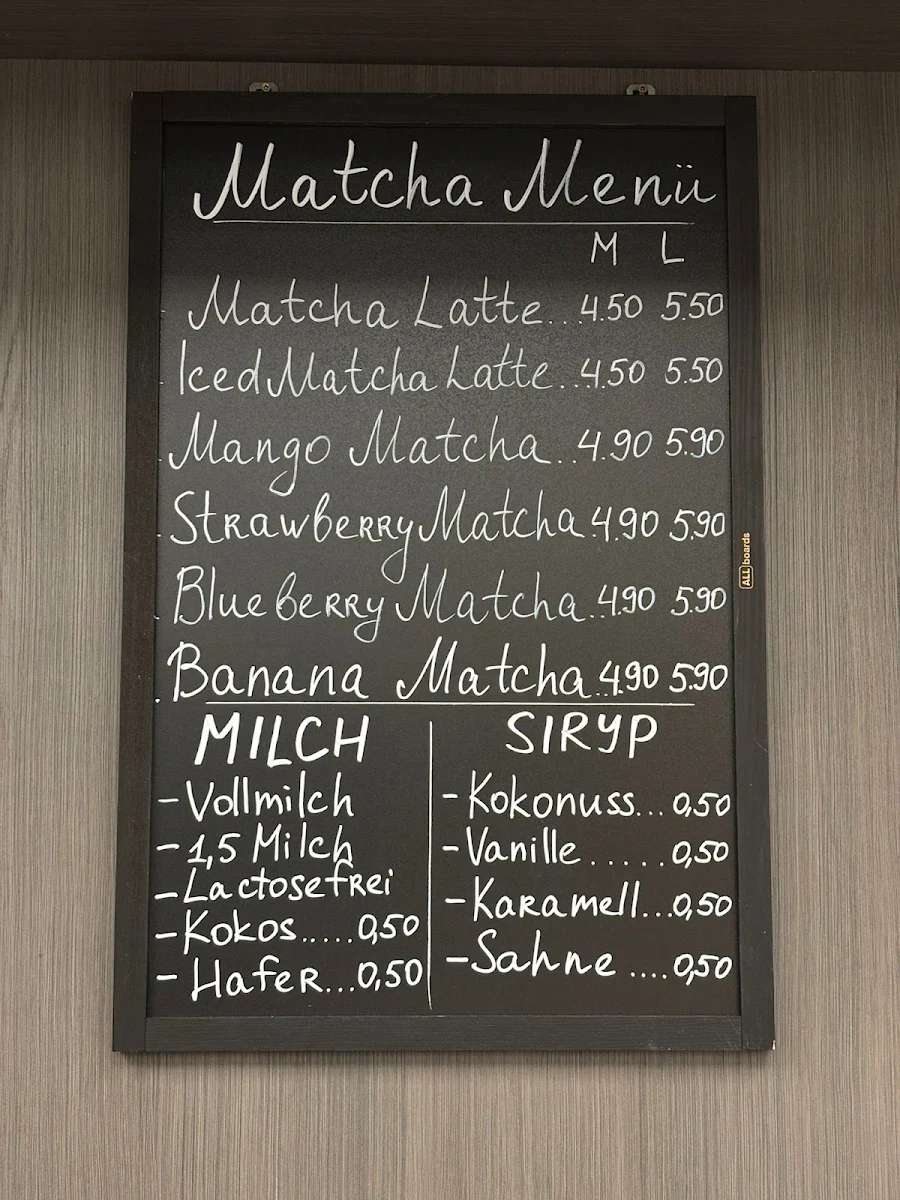 Matcha Menü
M L
Matcha Latte...4.50 5.50
Iced Matcha Latte...4.50 5.50
Mango Matcha...4.90 5.90
Strawberry Matcha..4.90 5.90
Blueberry Matcha..4.90 5.90
Banana Matcha..4.90 5.90
MILCH
- Vollmilch
- 1,5 Milch
- Lactosefrei
- Kokos.....0,50
- Hafer...0,50
SIRYP
- Kokonuss...0,50
- Vanille.....0,50
- Karamell...0,50
- Sahne ....0,50
ALL boards